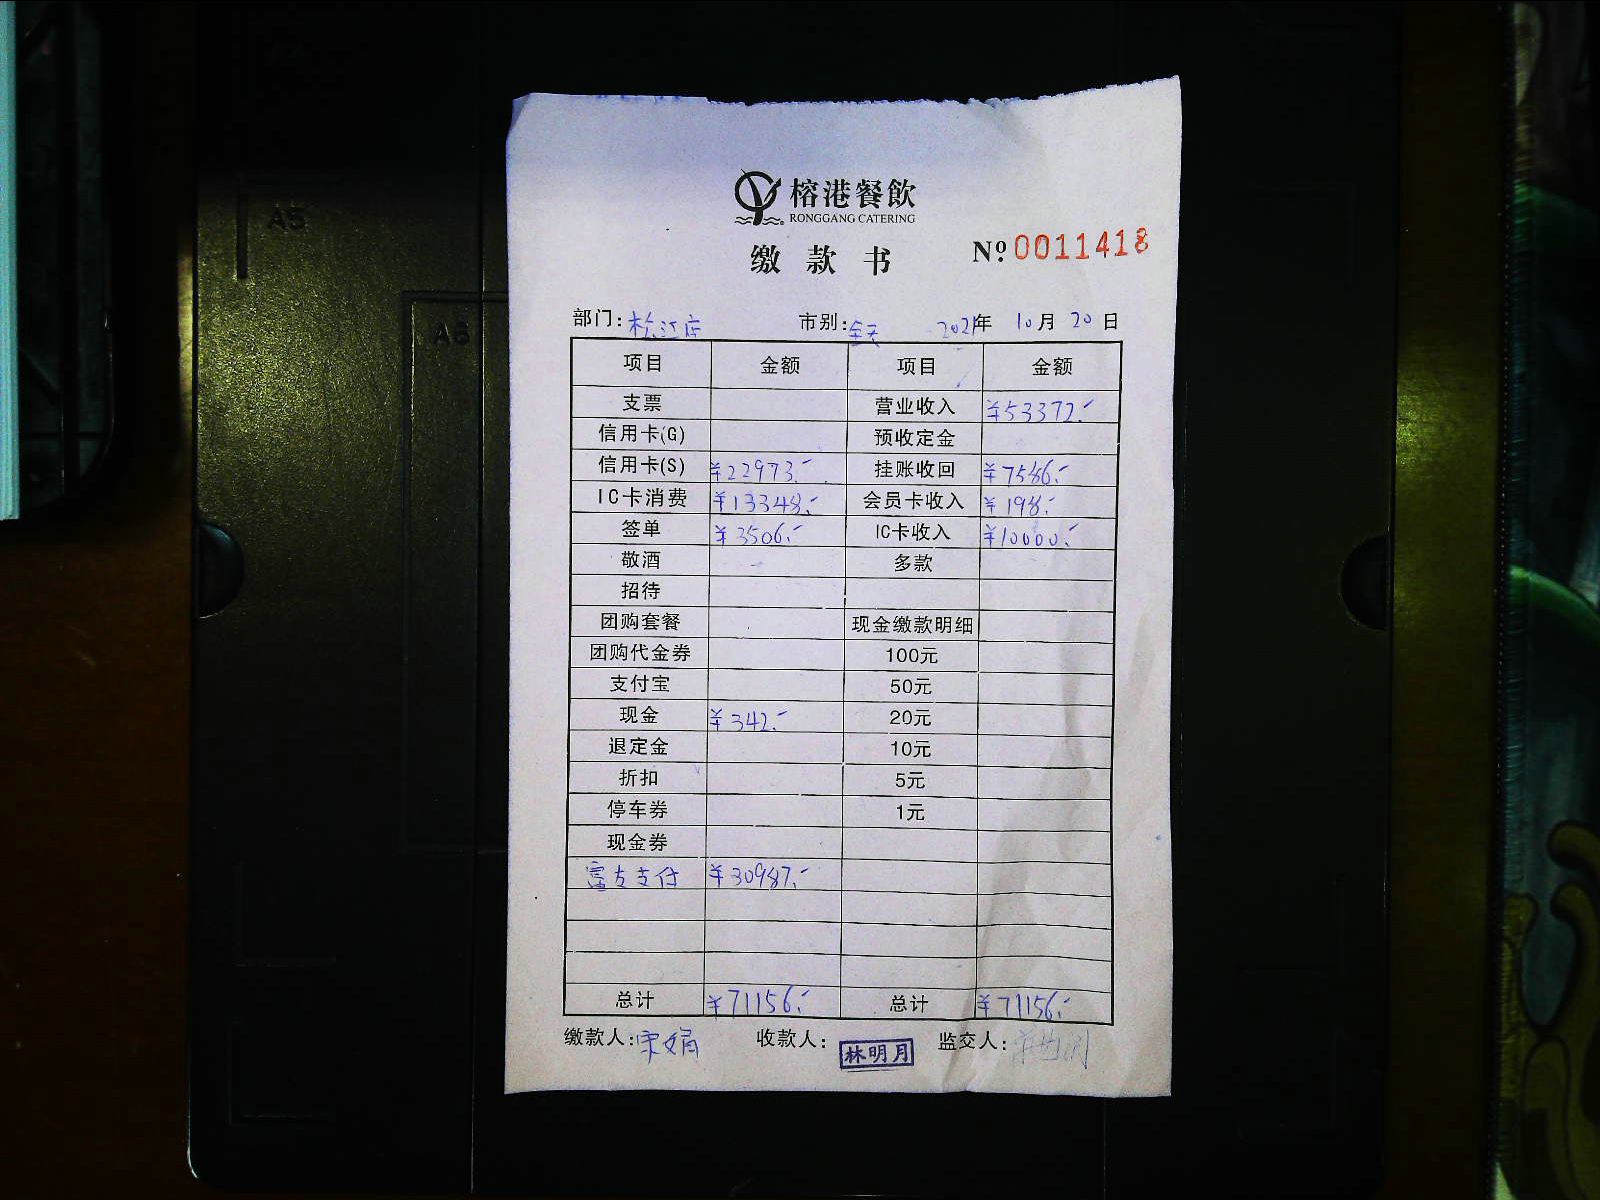 榕港餐飲
RONGGANG CATERING
缴款书 Nº 0011418
部门: 松江店 市别: 全天 2021年 10月 20日
项目 金额 项目 金额
支票 营业收入 ¥53372.-
信用卡(G) 预收定金
信用卡(S) ¥22973.- 挂账收回 ¥7586.-
IC卡消费 ¥13348.- 会员卡收入 ¥198.-
签单 ¥3506.- IC卡收入 ¥10000.-
敬酒 多款
招待
团购套餐 现金缴款明细
团购代金券 100元
支付宝 50元
现金 ¥342.- 20元
退定金 10元
折扣 5元
停车券 1元
现金券
富友支付 ¥30987.-
总计 ¥71156.- 总计 ¥71156.-
缴款人: 宋娟 收款人: 林明月 监交人:
A5
A6